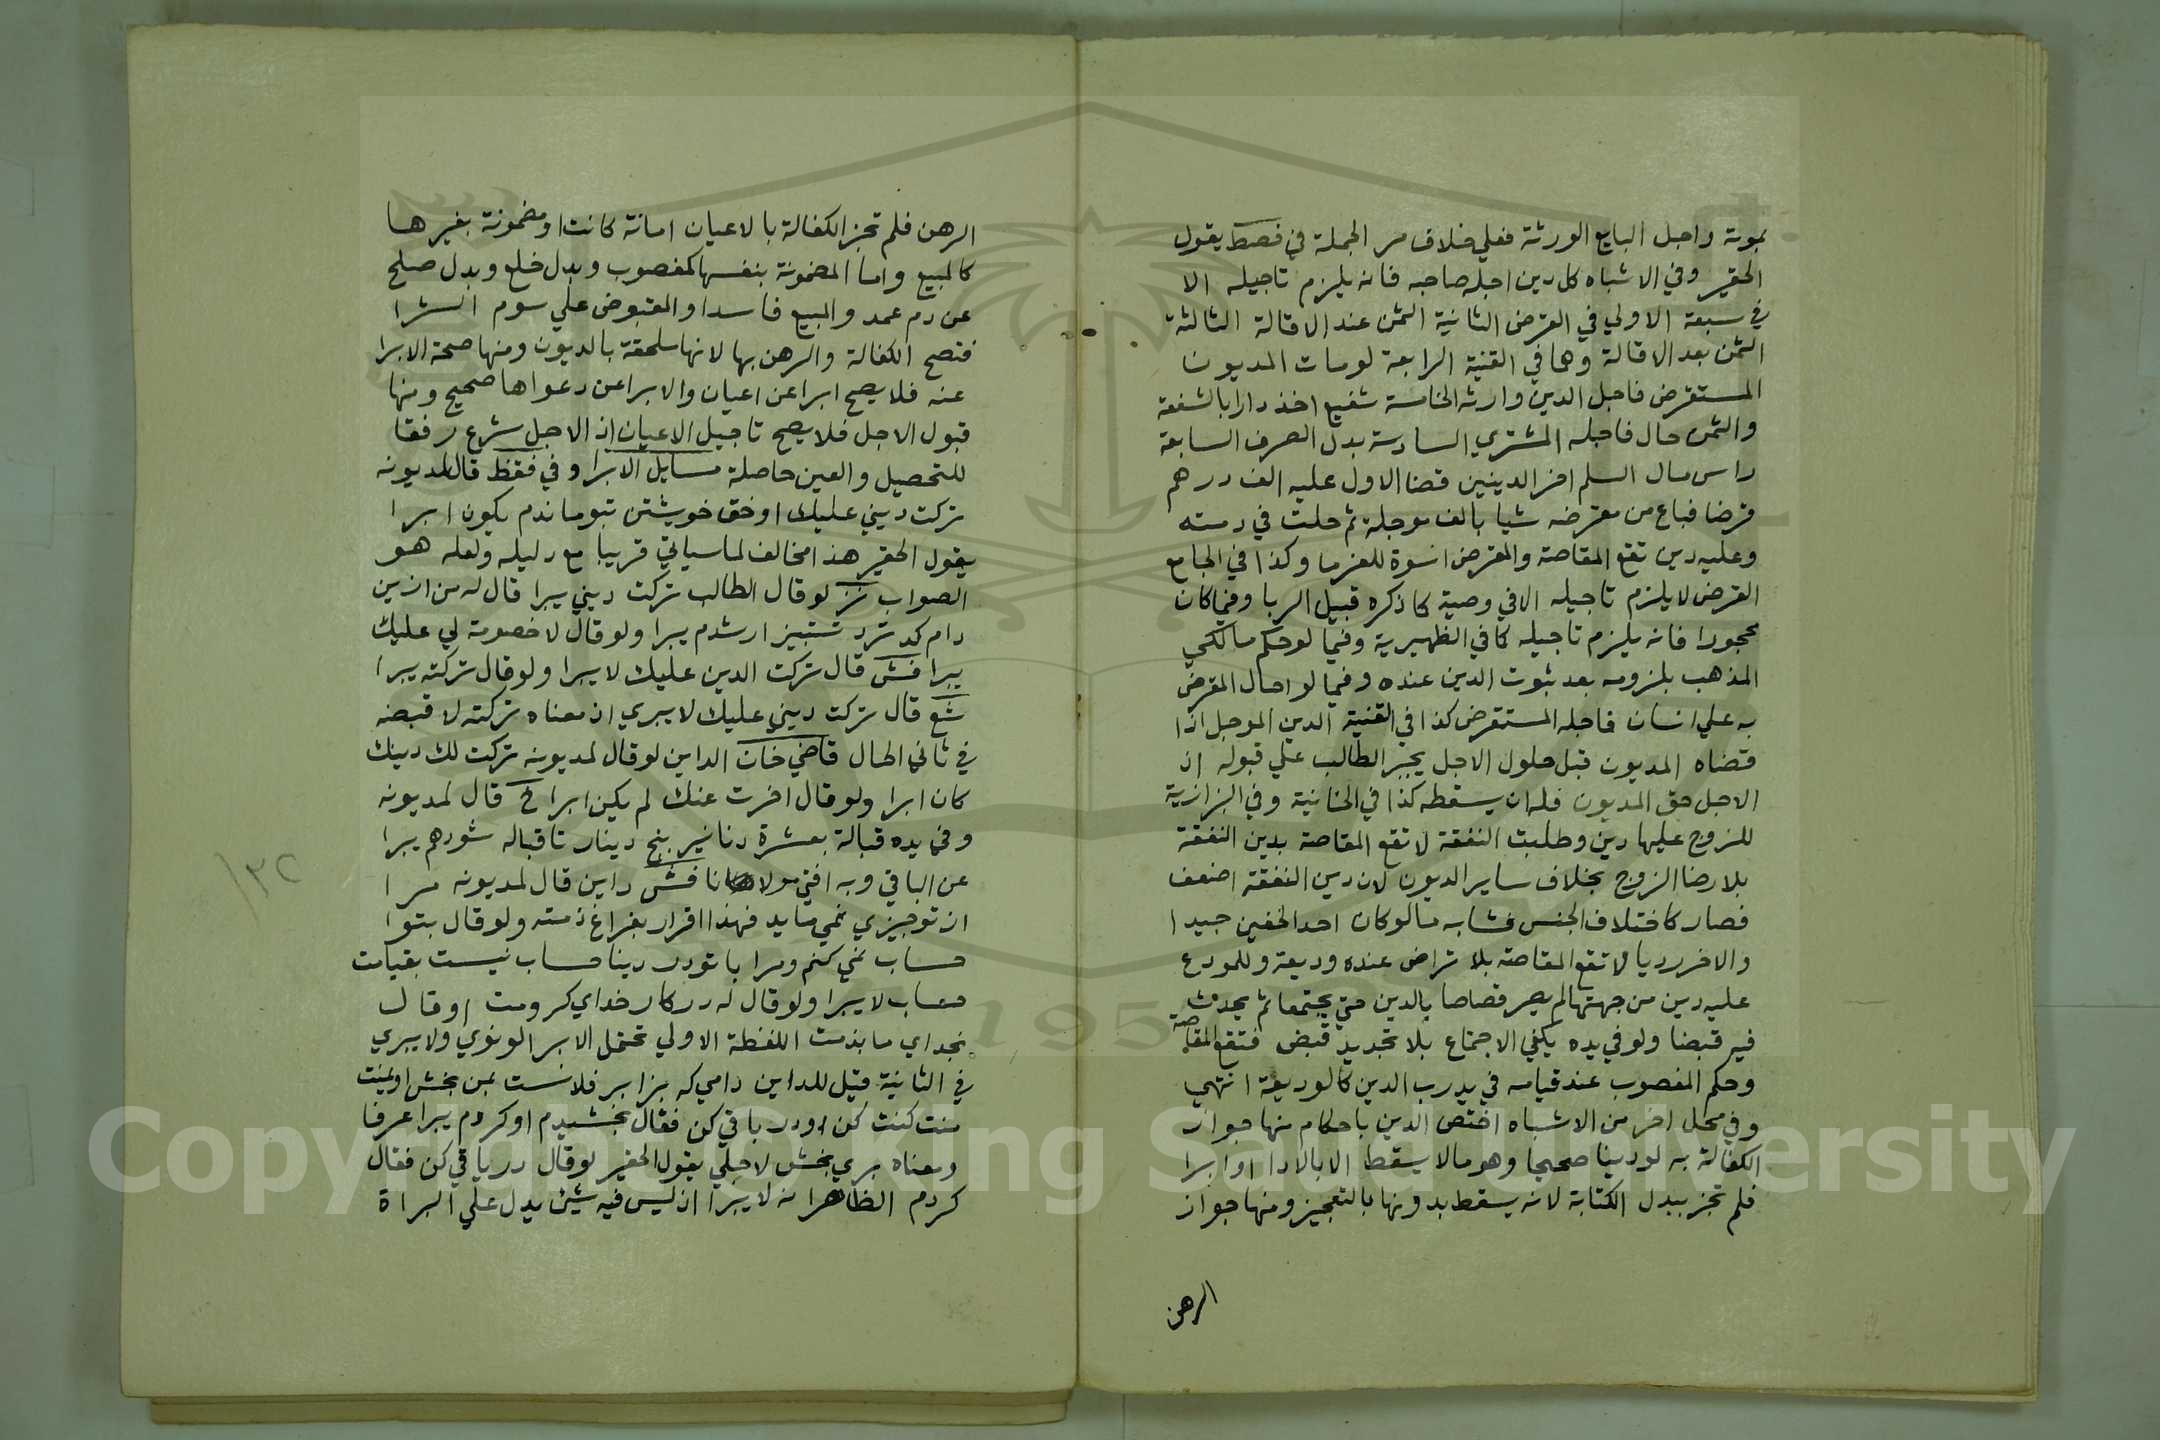 بموته واجل البايع الورثة فعلي خلاف مر الجملة في فصط يقول
الحقير وفي الاشباه كل دين اجله صاحبه فانه يلزم تاجيله الا
في سبعة الاولي في القرض الثانية الثمن عند الاقالة الثالثة
الثمن بعد الاقالة وهما في القنية الرابعة لو مات المديون
المستقرض فاجل الدين وارثه الخامسة شفيع اخذ دارا بالشفعة
والثمن حال فاجله المشتري السادسة بدل الصرف السابعة
راس مال السلم اخر الدينين قضا الاول عليه الف درهم
قرضا فباع من مقرضه شيا بالف موجلة ثم حلت في دمته
وعليه دين تقع المقاصة والمقرض اسوة للغرما وكذا في الجامع
القرض لا يلزم تاجيله الا في وصية كما ذكره قبيل الربا وفيما كان
مجحودا فانه يلزم تاجيله كما في الظهيرية وفيما لو حكم مالكي
المذهب بلزومه بعد ثبوت الدين عنده وفيما لو احال المقرض
به علي انسان فاجله المستقرض كذا في القنية الدين الموجل اذا
قضاه المديون قبل حلول الاجل يجبر الطالب علي قبوله اذ
الاجل حق المديون فله ان يسقطه كذا في الخانية وفي البزازية
للزوج عليها دين وطلبت النفقة لا تقع المقاصة بدين النفقة
بلا رضا الزوج بخلاف ساير الديون لان دين النفقة اضعف
فصار كاختلاف الجنس فشابه ما لو كان احد الخفين جيدا
والاخر رديا لا تقع المقاصة بلا تراض عنده وديعة وللمودع
عليه دين من جهتها لم يصر قصاصا بالدين حتي يجتمعا ثم يحدث
فيه قبضا ولو في يده يكفي الاجتماع بلا تجديد قبض فتقع المقاصة
وحكم المغصوب عند قيامه في يد رب الدين كالوديعة انتهي
وفي محل اخر من الاشباه اختص الدين باحكام منها جواز
الكفالة به لو دينا صحيحا وهو ما لا يسقط الا بالادا او ابرا
فلم تجز ببدل الكتابة لانه يسقط بدونها بالتعجيز ومنها جواز
الرهن
الرهن فلم تجز الكفالة بالاعيان امانة كانت او مضمونة بغيرها
كالمبيع واما المضمونة بنفسها كمغصوب وبدل خلع وبدل صلح
عن دم عمد والمبيع فاسدا والمقبوض علي سوم الشرا
فتصح الكفالة والرهن بها لانها ملحقة بالديون ومنها صحة الابرا
عنه فلا يصح ابرا عن اعيان والابرا عن دعواها صحيح ومنها
قبول الاجل فلا يصح تاجيل الاعيان اذ الاجل شرع رفقا
للتحصيل والعين حاصلة مسايل الابرا وفي فقظ قال لمديونه
تركت ديني عليك او حق خويشتن بتو ماندم يكون ابرا
يقول الحقير هذا مخالف لما سياتي قريبا مع دليله ولعله هو
الصواب لو قال الطالب تركت ديني يبرا قال له من ازين
دام كه ترد ارشدم يبرا ولو قال لا خصومة لي عليك
يبرا فش قال تركت الدين عليك لا يبرا ولو قال تركته يبرا
شع قال تركت ديني عليك لا يبري اذ معناه تركته لا قبضه
في ثاني الحال قاضي خان الداين لو قال لمديونه تركت لك دينك
كان ابرا ولو قال اخرت عنك لم يكن ابرا خ قال لمديونه
وفي يده قبالة بعشرة دنانير بنج دينار تا قباله شودهم يبرا
عن الباقي وبه افتي مولانا فش داين قال لمديونه مرا
از تو جيزي نمي مايد فهذا اقرار بفراغ ذمته ولو قال بتوا
حساب نمي كنم ومرا با تو در دينا حساب نيست بقيامت
حساب لا يبرا ولو قال له در كار خداي كرومت او قال
بخداي ماندمت اللفظة الاولي تحتمل الابرا لو نوي ولا يبري
في الثانية قيل للداين دامي كه بزابر فلانست بمن بخش او بمنت
منت كنت كن او در باقي كن فقال بخشيدم او كردم يبرا عرفا
ومعناه بري بخش لاجلي يقول الحقير لو قال در باقي كن فقال
كردم الظاهر انه لا يبرا اذ ليس فيه شي يدل علي البراة
١٣٢
Copyright © King Saud University
195